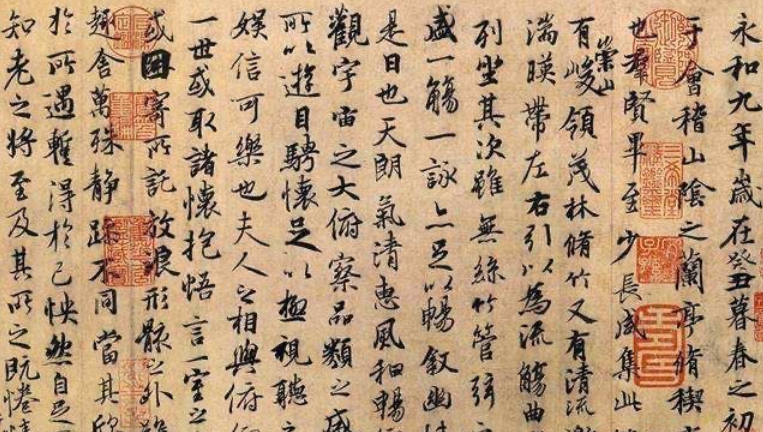 永和九年歲在癸丑暮春之初
于會稽山陰之蘭亭脩稧
也羣賢畢至少長咸集此
崇山
有峻領茂林脩竹又有清流
湍暎帶左右引以為流觴曲
列坐其次雖無絲竹管弦
盛一觴一詠亦足以暢敘幽
是日也天朗氣清惠風和暢
觀宇宙之大俯察品類之盛
所以遊目騁懷足以極視聽之
娛信可樂也夫人之相與俯
一世或取諸懷抱悟言一室之
或因寄所託放浪形骸之外
趣舍萬殊静躁不同當其欣
於所遇暫得於己怏然自足
知老之將至及其所之既惓